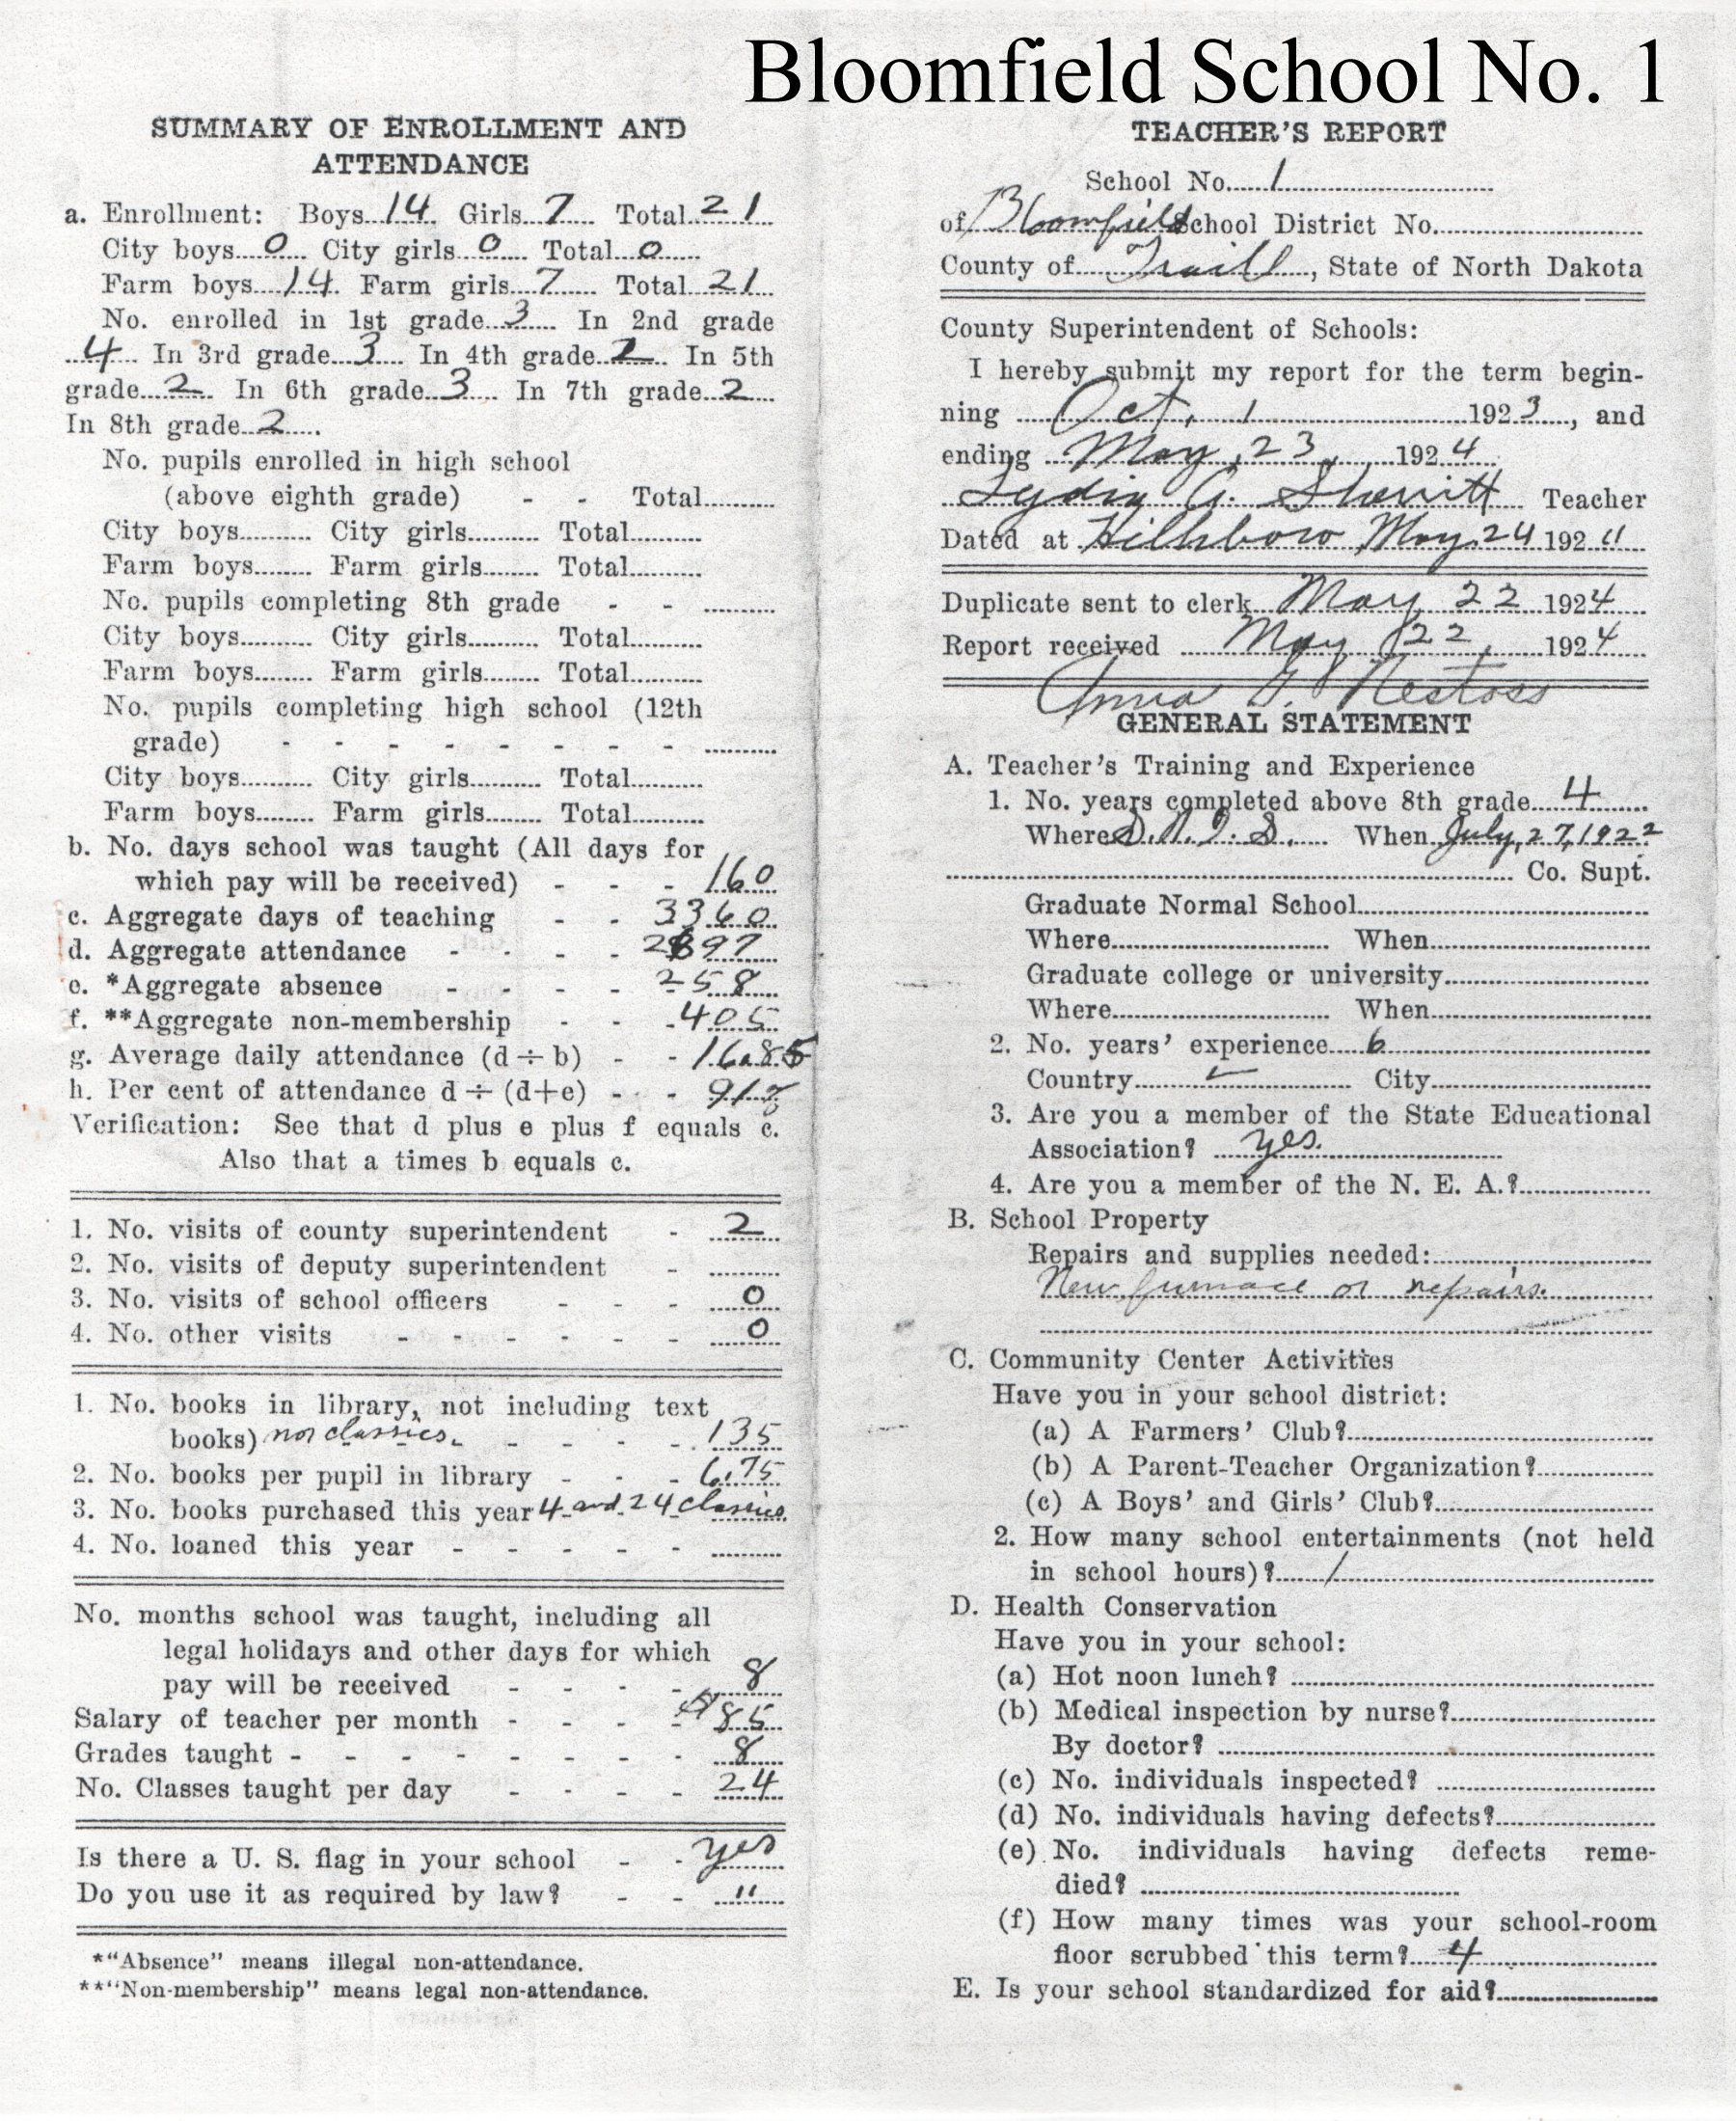 Bloomfield School No. 1
SUMMARY OF ENROLLMENT AND
ATTENDANCE
a. Enrollment: Boys 14 Girls 7 Total 21
City boys 0 City girls 0 Total 0
Farm boys 14 Farm girls 7 Total 21
No. enrolled in 1st grade 3 In 2nd grade
4 In 3rd grade 3 In 4th grade 2 In 5th
grade 2 In 6th grade 3 In 7th grade 2
In 8th grade 2.
No. pupils enrolled in high school
(above eighth grade) - - Total
City boys City girls Total
Farm boys Farm girls Total
No. pupils completing 8th grade - -
City boys City girls Total
Farm boys Farm girls Total
No. pupils completing high school (12th
grade) - - - - - - - -
City boys City girls Total
Farm boys Farm girls Total
b. No. days school was taught (All days for
which pay will be received) - - - 160
c. Aggregate days of teaching - - 3360
d. Aggregate attendance - - - - 2697
e. *Aggregate absence - - - - 258
f. **Aggregate non-membership - - - 405
g. Average daily attendance (d ÷ b) - - 16.85
h. Per cent of attendance d ÷ (d+e) - - 91
Verification: See that d plus e plus f equals c.
Also that a times b equals c.
1. No. visits of county superintendent - 2
2. No. visits of deputy superintendent -
3. No. visits of school officers - - - 0
4. No. other visits - - - - - - 0
1. No. books in library, not including text
books) nor classics. - - - - 135
2. No. books per pupil in library - - - 6.75
3. No. books purchased this year 4 and 24 classics.
4. No. loaned this year - - - - -
No. months school was taught, including all
legal holidays and other days for which
pay will be received - - - - 8
Salary of teacher per month - - - - $85
Grades taught - - - - - - - - 8
No. Classes taught per day - - - - 24
Is there a U. S. flag in your school - - yes
Do you use it as required by law? - - "
*"Absence" means illegal non-attendance.
**"Non-membership" means legal non-attendance.
TEACHER'S REPORT
School No. 1
of Bloomfield School District No.
County of Traill, State of North Dakota
County Superintendent of Schools:
I hereby submit my report for the term begin-
ning Oct. 1 1923, and
ending May 23, 1924
Lydia G. Sherritt Teacher
Dated at Hillsboro May 24 192 "
Duplicate sent to clerk May 22 1924
Report received May 22, 1924
Anna G. Nestoss
GENERAL STATEMENT
A. Teacher's Training and Experience
1. No. years completed above 8th grade 4
Where When July, 27, 1922
Co. Supt.
Graduate Normal School
Where When
Graduate college or university
Where When
2. No. years' experience 6
Country ✓ City
3. Are you a member of the State Educational
Association? yes.
4. Are you a member of the N. E. A.?
B. School Property
Repairs and supplies needed:
New furnace or repairs.
C. Community Center Activities
Have you in your school district:
(a) A Farmers' Club?
(b) A Parent-Teacher Organization?
(c) A Boys' and Girls' Club?
2. How many school entertainments (not held
in school hours)? 1
D. Health Conservation
Have you in your school:
(a) Hot noon lunch?
(b) Medical inspection by nurse?
By doctor?
(c) No. individuals inspected?
(d) No. individuals having defects?
(e) No. individuals having defects reme-
died?
(f) How many times was your school-room
floor scrubbed this term? 4
E. Is your school standardized for aid?